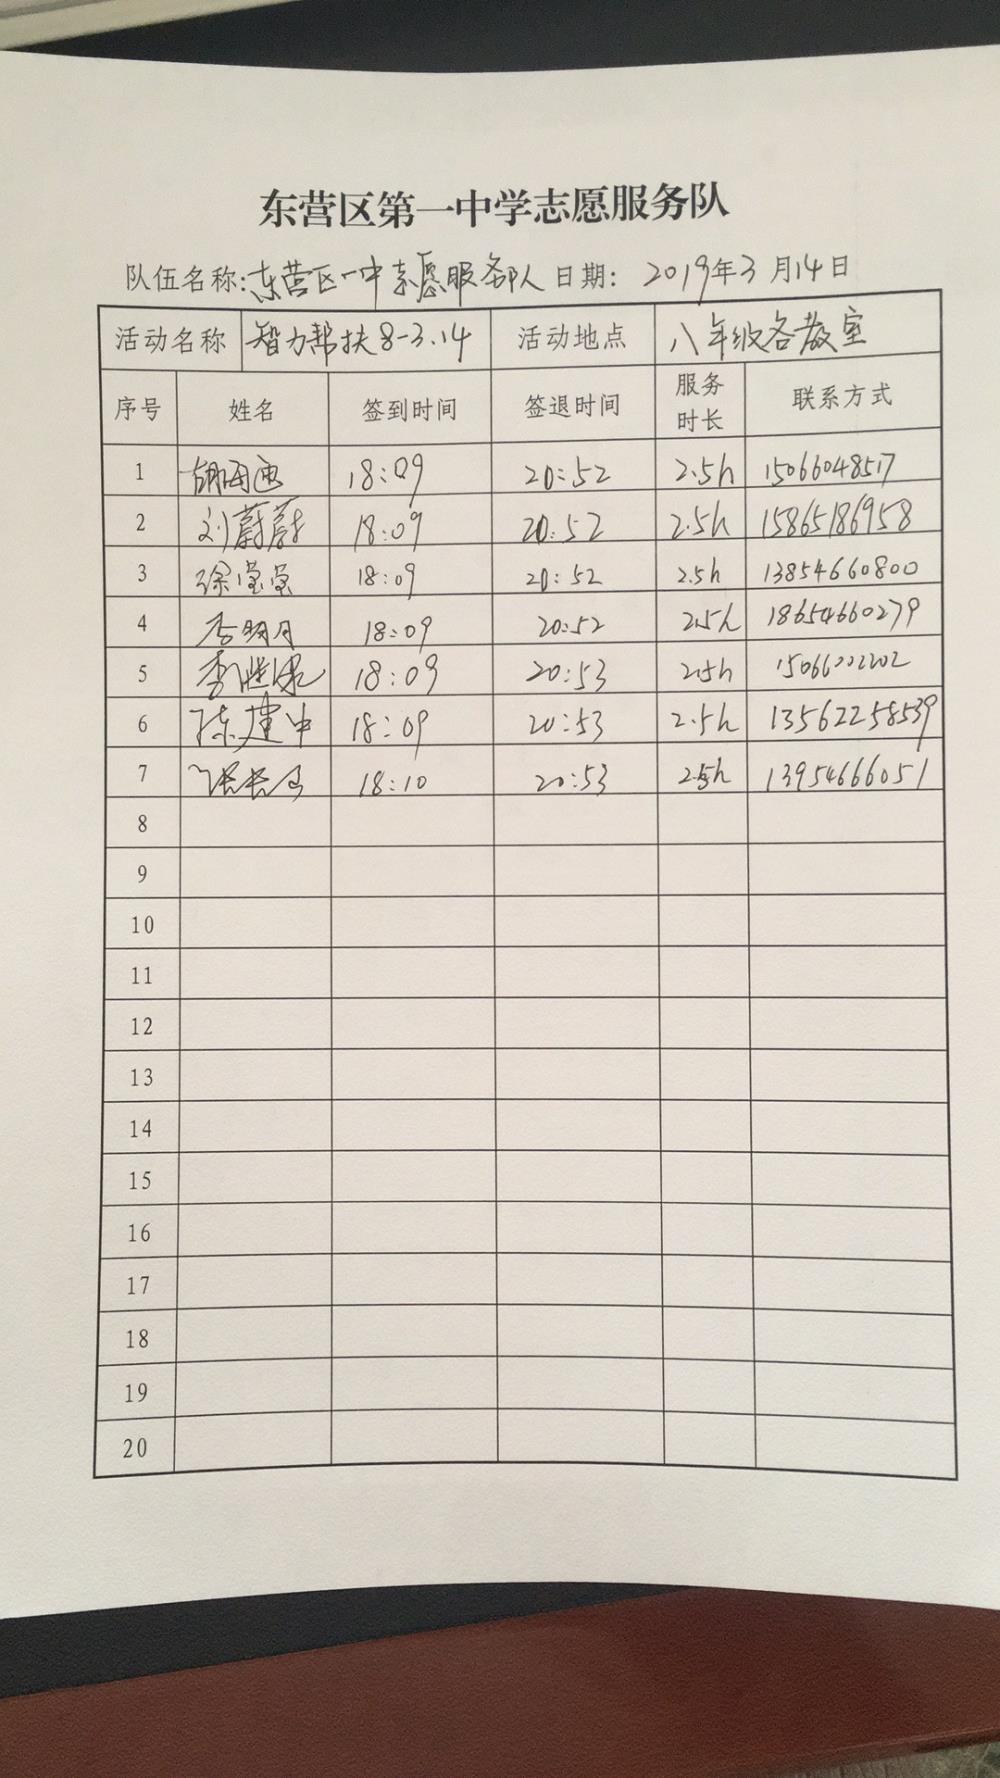 东营区第一中学志愿服务队
队伍名称:东营区一中志愿服务队 日期: 2019年3月14日
活动名称 智力帮扶8-3.14 活动地点 八年级各教室
序号 姓名 签到时间 签退时间 服务时长 联系方式
1 18:09 20:52 2.5h 15066048517
2 刘蔚蔚 18:09 20:52 2.5h 15865186958
3 徐莹莹 18:09 20:52 2.5h 13854660800
4 李明月 18:09 20:52 2.5h 18654660279
5 18:09 20:53 2.5h
6 陈建中 18:09 20:53 2.5h 13562258539
7 18:10 20:53 2.5h 13954666051
8
9
10
11
12
13
14
15
16
17
18
19
20